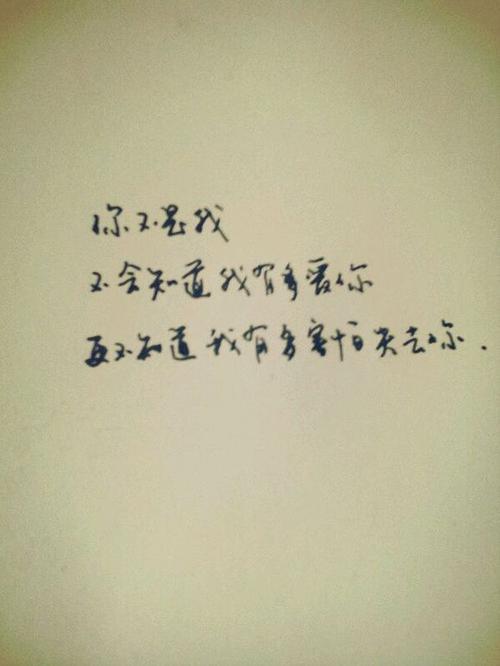 你不是我
不会知道我有多爱你
更不知道我有多害怕失去你.